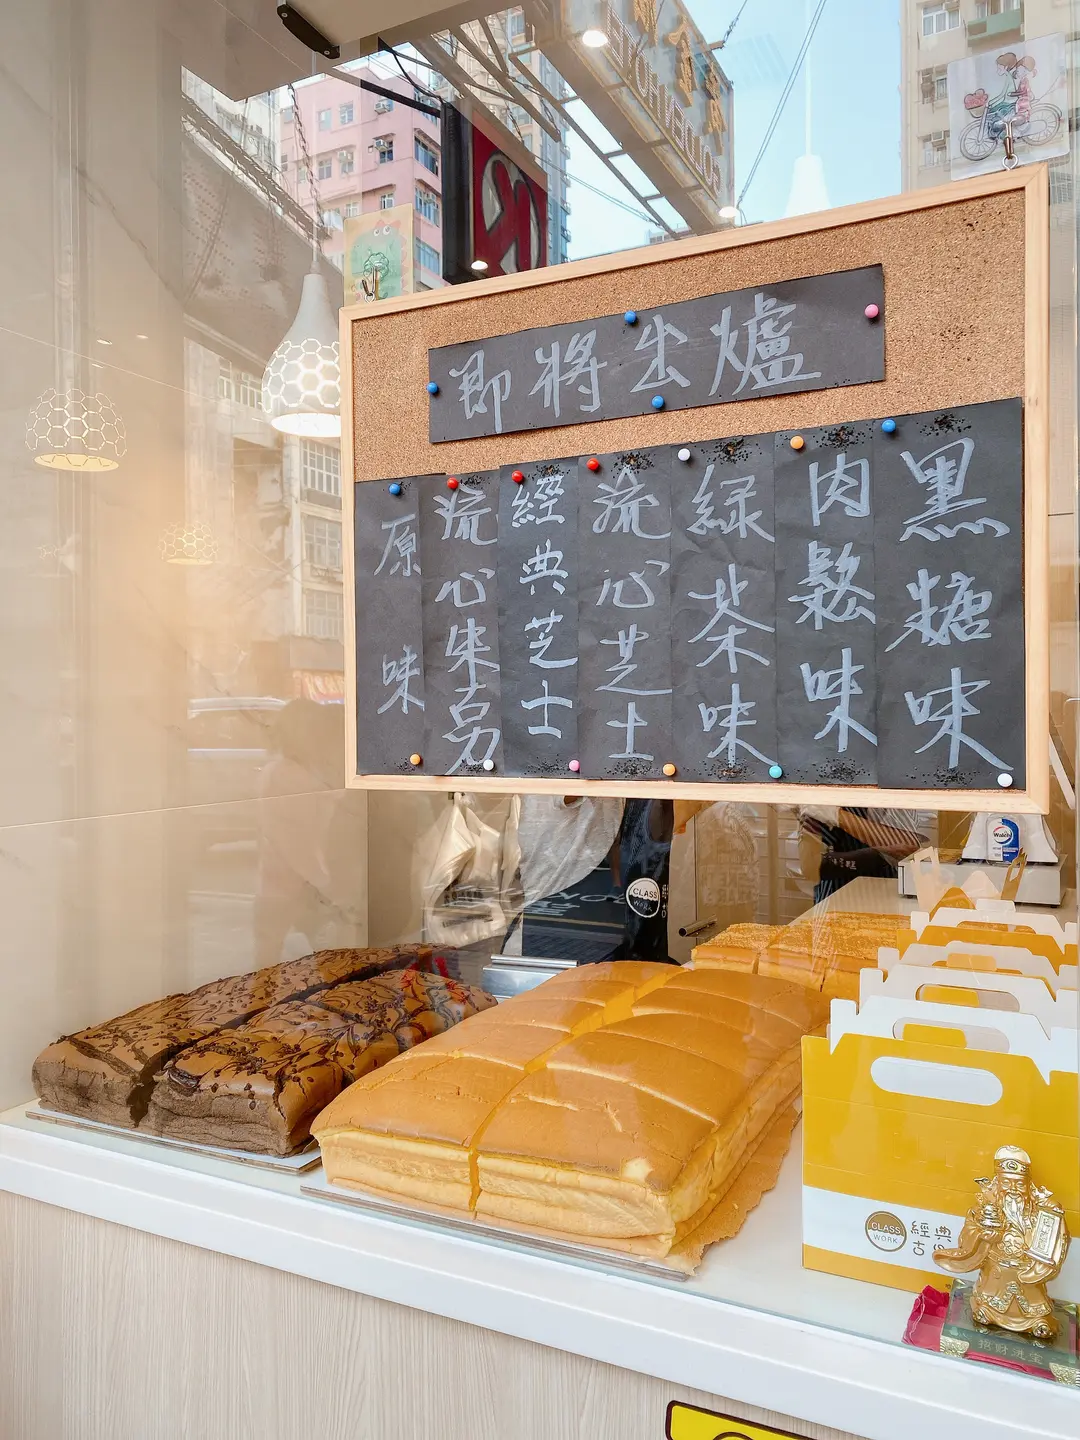 即將出爐
原味
流心朱古力
經典芝士
流心芝士
綠茶味
肉鬆味
黑糖味
Walch
CLASS
WORK
CLASS
WORK
經典
古
招財進宝